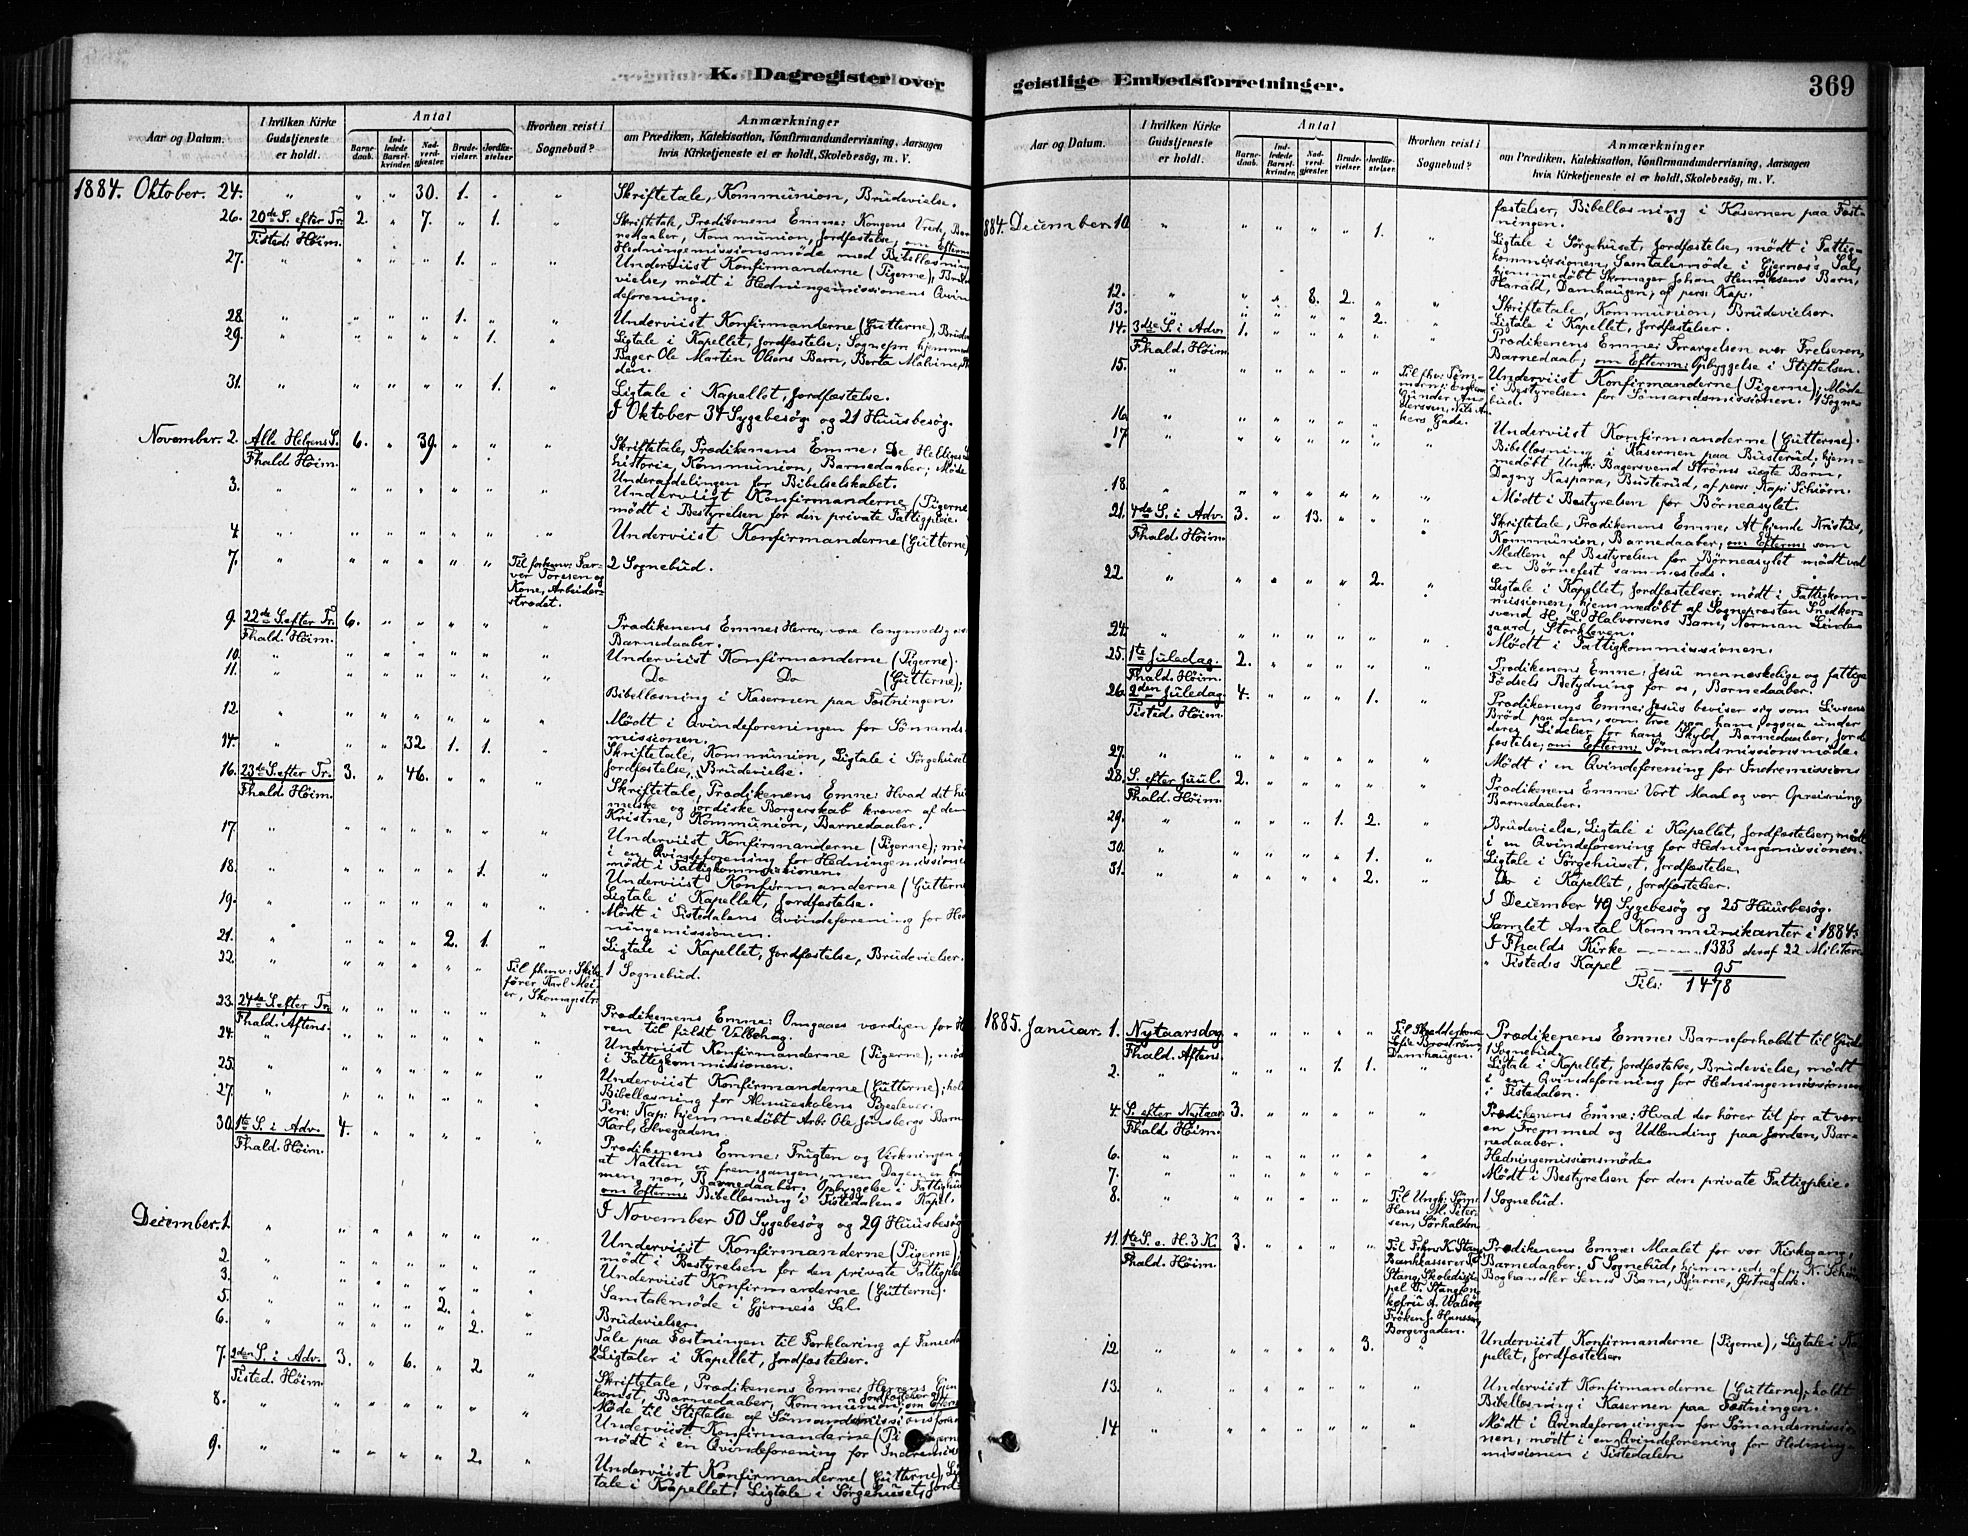 K. Dagregister over
Aar og Datum.
I hvilken Kirke Gudstjeneste er holdt.
Antal
Barnedaab.
Indledede Barselkvinder.
Nadverdgjæster.
Brudevielser.
Jordfæstelser
Hvorhen reist i Sognebud?
Anmærkninger
om Prædiken, Katekisation, Konfirmandundervisning, Aarsagen
hvis Kirketjeneste ei er holdt, Skolebesøg, m. V.
1884. Oktober. 24. " " " 30. 1. " " Skriftetale, Kommunion, Brudevielse.
26. 20de S. efter Tr. 2. " 7. " 1. " Skriftetale, Prædikenens Emne: Kongens Vrede, Bar-
Tisted. Höim. nedaaber, Kommunion, Jordfæstelse, om Efterm:
Hedningemissionsmøde med Bibellæsning
27. " " " " 1. " " Underviist Konfirmanderne (Pigerne), Brude-
vielse, mödt i Hedningemissionens Qvin
deforening.
28. " " " " 1. " " Underviist Konfirmanderne (Gutterne), Brude
29. " " " " " 1. " Ligtale i Kapellet, Jordfæstelse; Sognepr. hjemmed
Bager Ole Martin Olsens Barn, Berta Malvine,
den.
31. " " " " " 1. " Ligtale i Kapellet, Jordfæstelse.
I Oktober 34 Sygebesøg og 21 Huusbesøg.
November. 2. Alle Helgens S. 6. " 39. " " " Skriftetale, Prædikenens Emne: De Helliges
Fhald. Höim. historie, Kommunion, Barnedaaber; Møde
Underafdelingen for Bibelselskabet.
3. " " " " " " " Underviist Konfirmanderne (Pigerne
mödt i Bestyrelsen for den private Fattigpleie.
4 " " " " " " " Underviist Konfirmanderne (Gutterne)
7. " " " " " " Til forhenv: Far- 2 Sognebud.
ver Toresen og
Kone, Arbeider-
strædet.
9. 22de S. efter Tr. 6. " " " " " Prædikenens Emne: Herren, vore langmodig
Fhald. Höim. Barnedaaber.
10. " " " " " " " Underviist Konfirmanderne (Pigerne).
11. " " " " " " " Do Do (Gutterne);
Bibellæsning i Kasernen paa Fæstningen.
12. " " " " " " " Mödt i Qvindeforeningen for Sömands-
missionen.
14. " " " 32 1. 1. " Skriftetale, Kommunion, Ligtale i Sørgehuset
Jordfæstelse, Brudevielse.
16. 23de S. efter Tr. 3. " 46. " " " Skriftetale, Prædikenens Emne: Hvad dit him
Fhald. Höim. melske og jordiske Borgerskab kræver af dem
Kristne, Kommunion, Barnedaaber.
17. " " " " " " " Underviist Konfirmanderne (Pigerne); mödt
i en Qvindeforening for Hedningemissionen
mödt i Fattigkommissionen.
18. " " " " " 1. " Underviist Konfirmanderne (Gutterne
Ligtale i Kapellet, Jordfæstelse.
19. " " " " " " " Mödt i Tistedalens Qvindeforening for Hed
ningemissionen.
21. " " " " 2. 1. " Ligtale i Kapellet, Jordfæstelse, Brudevielser.
22. " " " " " " Til fhenv: Skibs- 1 Sognebud.
fører Karl Mei-
er, Skomagerstr.
23. 24de S. efter Tr. " " " " " " Prædikenens Emne: Omgaaes værdigen for Her
Fhald. Aftens. ren til fuldt Velbehag.
24. " " " " " " " Underviist Konfirmanderne (Pigerne); mödt
i Fattigkommissionen.
25. " " " " " " " Underviist Konfirmanderne (Gutterne); holdt
Bibellæsning for Almueskolens Pigeelever.
27. " " " " " " " Pers: Kap: hjemmedöbt Arb: Ole Jonsbergs Barn
Karl, Elvegaden.
30. 1ste S. i Adv. 4. " " " " " Prædikenens Emne: Frugten og Virkningen
Fhald. Höim. at Natten er fremgangen, men Dagen er kom
men nær, Barnedaaber, Opbyggelse i Fattighuset
om Efterm: Bibellæsning i Tistedalens Kapel.
I November 50 Sygebesøg og 29 Huusbesøg
December. 1. " " " " " " " Underviist Konfirmanderne (Pigerne);
mödt i Bestyrelsen for den private Fattigpleie
2. " " " " " " " Underviist Konfirmanderne (Gutterne).
3. " " " " " " " Samtalemøde i Gjerness Sal.
5. " " " " 2. " " Brudevielser.
6. " " " " " 2. " Tale paa Fæstningen til Forklaring af Faneeden
2 Ligtaler i Kapellet, Jordfæstelser.
7. 2den S. i Adv. 3. " 6. " 2 " Skriftetale, Prædikenens Emne: Herrens Gjen
Tisted. Höim. komst, Barnedaaber, Kommunion, Jordfæstelser, om Efterm
Møde til Stiftelse af Sömandsmissionsforening
8. " " " " " " " Underviist Konfirmanderne (Pigerne
mödt i en Qvindeforening for Indremiss
9. " " " " " 2. " Underviist Konfirmanderne (Gutterne), Lig
tale i Kapellet, Ligtale i Sørgehuset, Jord-
geistlige Embedsforretninger.
369
Aar og Datum.
I hvilken Kirke Gudstjeneste er holdt.
Antal
Barnedaab.
Indledede Barselkvinder.
Nadverdgjæster.
Brudevielser.
Jordfæstelser.
Hvorhen reist i Sognebud?
Anmærkninger
om Prædiken, Katekisation, Konfirmandundervisning, Aarsagen
hvis Kirketjeneste ei er holdt, Skolebesøg, m. V.
fæstelser, Bibellæsning i Kasernen paa Fæst-
ningen.
1884. December. 10. " " " " " 1. " Ligtale i Sørgehuset, Jordfæstelse, mødt i Fattig-
kommissionen, Samtalemøde i Gjerness Sal,
hjemmedøbt Skomager Johan Henriksens Barn,
Harald, Damhaugen, af pers: Kap:
12. " " " 8. 2. " " Skriftetale, Kommunion, Brudevielser.
13. " " " " " 2. " Ligtale i Kapellet, Jordfæstelser.
14. 3die S. i Adv. 1. " " " " " Prædikenens Emne: Forargelsen over Frelseren,
Fhald. Höim. Barnedaab; om Efterm: Opbyggelse i Stiftelsen.
15. " " " " " " Til fhv: Töm- Underviist Konfirmanderne (Pigerne); Møde
i Bestyrelsen for Sömandsmissionen. 1 Sogne
bud.
16. " " " " " " " Underviist Konfirmanderne (Gutterne).
17 " " " " " " " Bibellæsning i Kasernen paa Busterud; hjem-
medöbt Ungk: Bagersvend Ströms uægte Barn,
Dagny Kaspara, Busterud, af pers: Kap: Schiörn.
18. " " " " " " " Mødt i Bestyrelsen for Børneasylet.
21. 4de S. i Adv. 3. " 13. " " " Skriftetale, Prædikenens Emne: At kjende Kristus,
Fhald. Höim. Kommunion, Barnedaaber; om Efterm: som
Medlem af Bestyrelsen for Børneasylet mödt ved
en Børnefest sammesteds.
22. " " " " " 2. " Ligtale i Kapellet, Jordfæstelser, mödt i Fattigkom-
missionen, hjemmedöbt af Sognepræsten Snedker-
svend H. L. Halvorsens Barn, Norman Linde-
gaard, Storkleven.
24. " " " " " " " Mødt i Fattigkommissionen.
25. 1ste Juledag. 2. " " " " " Prædikenens Emne: Jesu menneskelige og fattige
Fhald. Höim. Födsels Betydning for os, Barnedaaber.
26. 2den Juledag 4. " " " 1. " Prædikenens Emne: Jesus beviser sig som Livsens
Tisted. Höim. Brød paa dem, som troe paa ham ogsaa under
deres Lidelser for hans Skyld, Barnedaaber, Jord-
fæstelse, om Efterm: Sömandsmissionsmøde.
27. " " " " " " " Mødt i en Qvindeforening for Indremissions
28. S. efter Juul. 2. " " " " " Prædikenens Emne: Vort Maal og vor Opreisning
Fhald. Höim. Barnedaaber.
29. " " " " 1. 2. " Brudevielse, Ligtale i Kapellet, Jordfæstelser, mödt
i en Qvindeforening for Hedningemissionen.
30. " " " " " 1. " Ligtale i Sørgehuset, Jordfæstelse.
31. " " " " " 2. " Do i Kapellet, Jordfæstelser.
I December 49 Sygebesøg og 25 Huusbesøg.
Samlet Antal Kommunikanter i 1884:
I Fhalds Kirke 1383 deraf 22 Militære
" Tisteds Kapel 95
Tils: 1478
1885. Januar. 1. Nytaarsdag. " " " " " Til Skrædderkone Prædikenens Emne: Barneforholdet til Gud.
Fhald. Aftens. Sofie Broström, 1 Sognebud.
Damhaugen.
2. " " " " 1. 1. " Ligtale i Kapellet, Jordfæstelse, Brudevielse, mødt
i en Qvindeforening for Hedningemissionen
i Tistedalen.
4. S. efter Nytaar 3. " " " " " Prædikenens Emne: Hvad der hører til for at være
Fhald. Höim. en Fremmed og Udlending paa Jorden, Bar-
nedaaber.
6. " " " " " " " Hedningemissionsmøde.
7. " " " " " " " Mødt i Bestyrelsen for den private Fattigpleie.
8. " " " " " " Til Ungk: Söm: 1 Sognebud.
Hans M. Peter-
sen, Sörhalden
11. 1ste S. e. H. 3 K. 3. " " " " Prædikenens Emne: Maalet for vor Kirkegang;
Fhald. Höim. Barnedaaber. 5 Sognebud, hjemmed: af p: K. Schiörn
Boghandler Sems Barn, Bjarne,
Fröken J. Hansen,
Borgergaden.
12. " " " " " 3. " Underviist Konfirmanderne (Pigerne), Ligtale i Ka
pellet, Jordfæstelser.
13. " " " " " " " Underviist Konfirmanderne (Gutterne); holdt
Bibellæsning i Kasernen paa Fæstningen.
14 " " " " " " " Mødt i Qvindeforeningen for Sömandsmissio
nen, mødt i en Qvindeforening for Hedninge-
missionen i Tistedalen